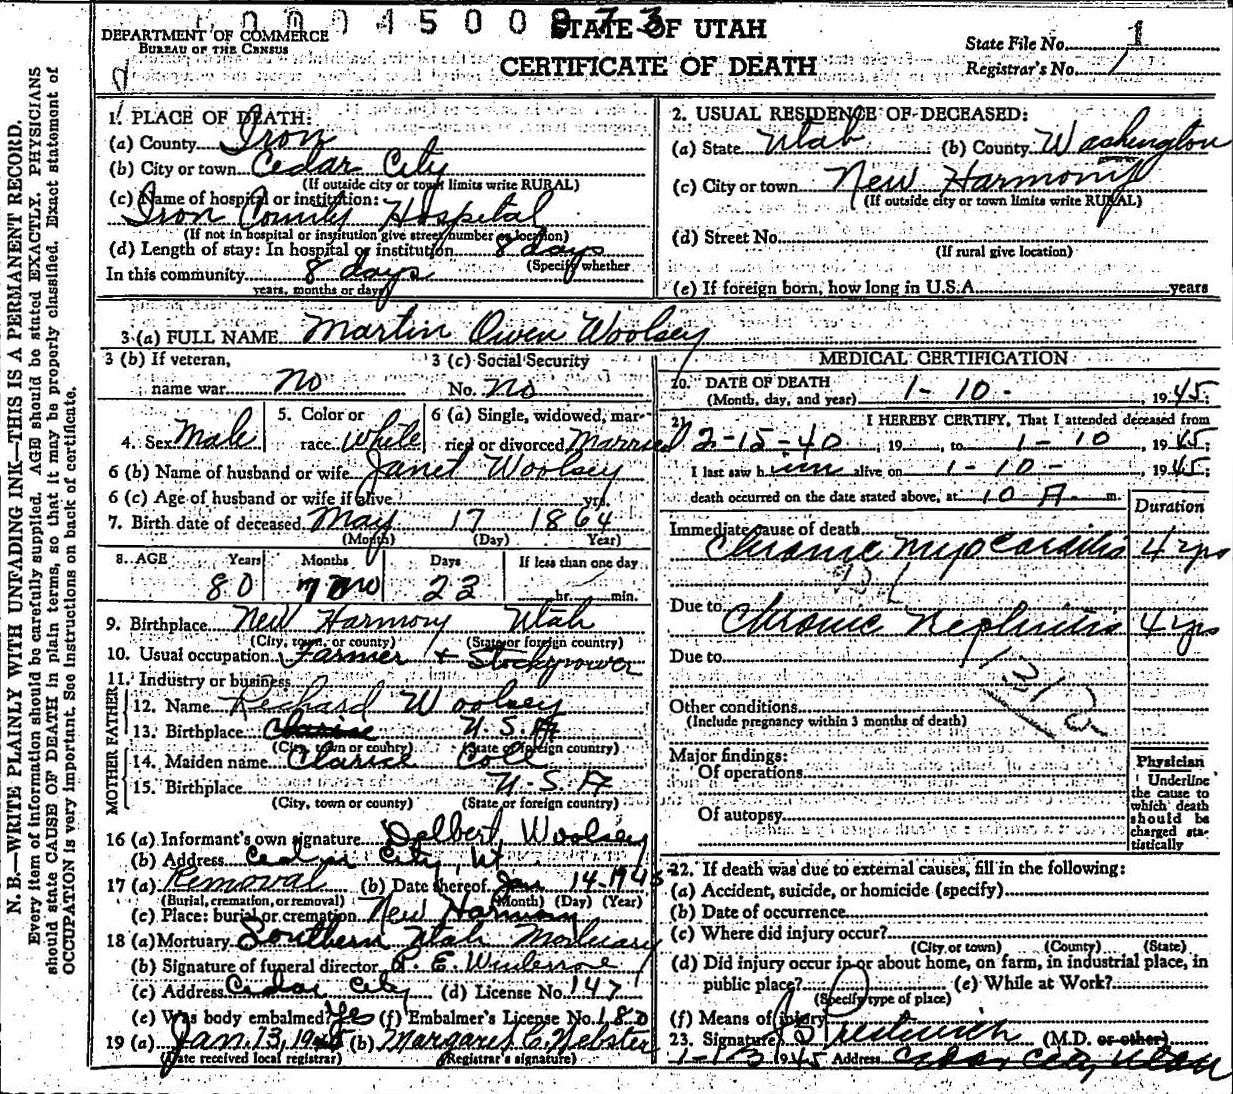 000450087 3
DEPARTMENT OF COMMERCE
BUREAU OF THE CENSUS
STATE OF UTAH
CERTIFICATE OF DEATH
State File No. 1
Registrar's No. 1
N. B.—WRITE PLAINLY WITH UNFADING INK—THIS IS A PERMANENT RECORD.
Every item of information should be carefully supplied. AGE should be stated EXACTLY. PHYSICIANS
should state CAUSE OF DEATH in plain terms, so that it may be properly classified. Exact statement of
OCCUPATION is very important. See Instructions on back of certificate.
1. PLACE OF DEATH:
(a) County Iron
(b) City or town Cedar City
(If outside city or town limits write RURAL)
(c) Name of hospital or institution:
Iron County Hospital
(If not in hospital or institution give street number or location)
(d) Length of stay: In hospital or institution 8 days
(Specify whether
In this community 8 days
years, months or days)
2. USUAL RESIDENCE OF DECEASED:
(a) State Utah (b) County Washington
(c) City or town New Harmony
(If outside city or town limits write RURAL)
(d) Street No.
(If rural give location)
(e) If foreign born, how long in U.S.A. years
3 (a) FULL NAME Martin Owen Woolsey
3 (b) If veteran,
name war no
3 (c) Social Security
No. no
4. Sex Male
5. Color or
race White
6 (a) Single, widowed, mar-
ried or divorced Married
6 (b) Name of husband or wife Janet Woolsey
6 (c) Age of husband or wife if alive yrs.
7. Birth date of deceased May 17 1864
(Month) (Day) Year)
8. AGE Years Months Days If less than one day
80 7 mo 23 hr. min.
9. Birthplace New Harmony Utah
(City, town, or county) (State or foreign country)
10. Usual occupation Farmer + Stockgrower
11. Industry or business
FATHER
12. Name Richard Woolsey
13. Birthplace Clarise U.S.A
(City, town or county) (State or foreign country)
MOTHER
14. Maiden name Clarise Coll
15. Birthplace U.S.A
(City, town or county) (State or foreign country)
16 (a) Informant's own signature Delbert Woolsey
(b) Address Cedar City, Ut
17 (a) Removal (b) Date thereof Jan 14-1945
(Burial, cremation, or removal) (Month) (Day) (Year)
(c) Place: burial or cremation New Harmony
18 (a) Mortuary Southern Utah Mortuary
(b) Signature of funeral director R. E.
(c) Address Cedar City (d) License No. 147
(e) Was body embalmed? Yes (f) Embalmer's License No. 180
19 (a) Jan. 13, 1945 (b) Margaret C. Webster
(Date received local registrar) (Registrar's signature)
MEDICAL CERTIFICATION
20. DATE OF DEATH
(Month, day, and year) 1-10-, 1945;
21. I HEREBY CERTIFY, That I attended deceased from
2-15-40, 19, to 1-10 1945;
I last saw him alive on 1-10- 1945;
death occurred on the date stated above, at 10 A. m.
Duration
Immediate cause of death
Chronic Myocarditis 4 yrs
Due to Chronic Nephritis 4 yrs
Due to
Other conditions
(Include pregnancy within 3 months of death)
Major findings:
Of operations
Of autopsy
Physician
Underline
the cause to
which death
should be
charged sta-
tistically
22. If death was due to external causes, fill in the following:
(a) Accident, suicide, or homicide (specify)
(b) Date of occurrence
(c) Where did injury occur?
(City or town) (County) (State)
(d) Did injury occur in or about home, on farm, in industrial place, in
public place? (e) While at Work?
(Specify type of place)
(f) Means of injury
23. Signature (M.D. or other)
1-13 1945 Address Cedar City Utah